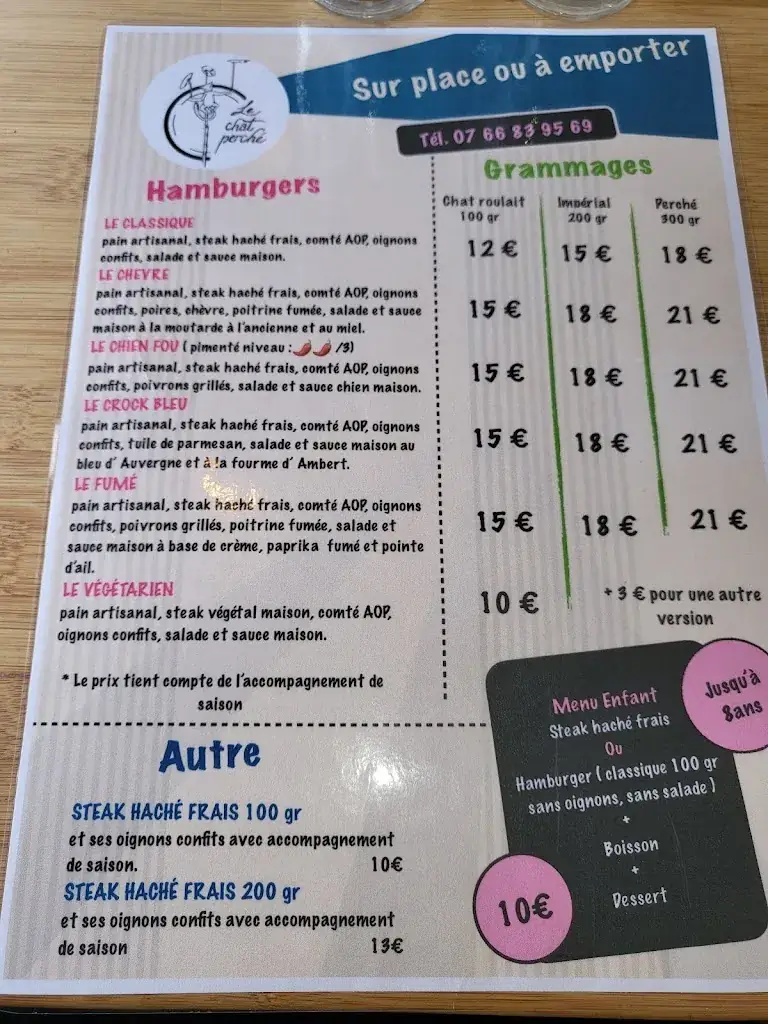 Le
chat
perché
Sur place ou à emporter
Tél. 07 66 83 95 69
Hamburgers
Grammages
Chat roulait
100 gr
Impérial
200 gr
Perché
300 gr
LE CLASSIQUE
pain artisanal, steak haché frais, comté AOP, oignons
confits, salade et sauce maison.
12 € 15 € 18 €
LE CHEVRE
pain artisanal, steak haché frais, comté AOP, oignons
confits, poires, chèvre, poitrine fumée, salade et sauce
maison à la moutarde à l'ancienne et au miel.
15 € 18 € 21 €
LE CHIEN FOU ( pimenté niveau : 🌶️🌶️ /3)
pain artisanal, steak haché frais, comté AOP, oignons
confits, poivrons grillés, salade et sauce chien maison.
15 € 18 € 21 €
LE CROCK BLEU
pain artisanal, steak haché frais, comté AOP, oignons
confits, tuile de parmesan, salade et sauce maison au
bleu d' Auvergne et à la fourme d' Ambert.
15 € 18 € 21 €
LE FUMÉ
pain artisanal, steak haché frais, comté AOP, oignons
confits, poivrons grillés, poitrine fumée, salade et
sauce maison à base de crème, paprika fumé et pointe
d'ail.
15 € 18 € 21 €
LE VÉGÉTARIEN
pain artisanal, steak végétal maison, comté AOP,
oignons confits, salade et sauce maison.
10 €
+ 3 € pour une autre
version
* Le prix tient compte de l'accompagnement de
saison
Autre
STEAK HACHÉ FRAIS 100 gr
et ses oignons confits avec accompagnement
de saison. 10€
STEAK HACHÉ FRAIS 200 gr
et ses oignons confits avec accompagnement
de saison 13€
Jusqu'à
8ans
Menu Enfant
Steak haché frais
Ou
Hamburger ( classique 100 gr
sans oignons, sans salade )
+
Boisson
+
Dessert
10€